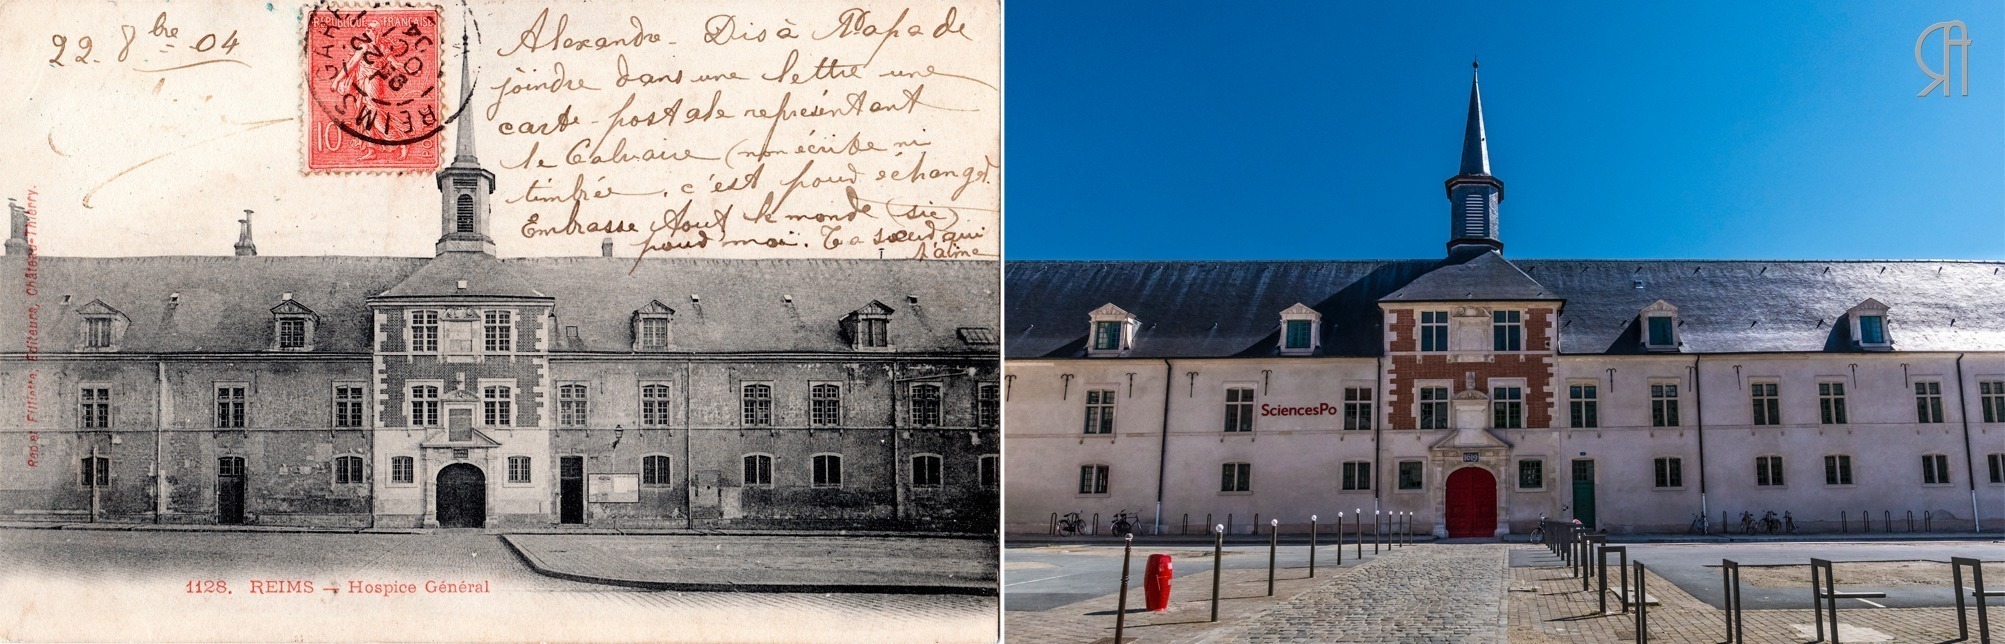 22. 8bre 04
RÉPUBLIQUE FRANÇAISE
REIMS
GARE
22
OCT
04
10
POSTES
Alexandre - Dis à Papa de
joindre dans une lettre une
carte-postale représentant
le Calvaire (non écrite ni
timbrée. c'est pour échanger.
Embrasse tout le monde (sic)
pour moi. Ta sœur qui
t'aime
Rep et Filliette, Editeurs, Château-Thierry.
1128. REIMS - Hospice Général
SciencesPo
1619
RA